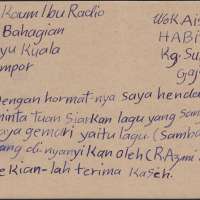 Kaum Ibu Radio
Bahagian
yu Kuala
mpor
Wok Ais
HABI
Kg. Su
Gaj
Dengan hormat-nya saya henda
minta Tuan Siarkan lagu yang sam
saya gemari yaitu lagu. (Samba
ang di-nyanyi Kan oleh (R. Azmi
ekian-lah terima Kaseh.